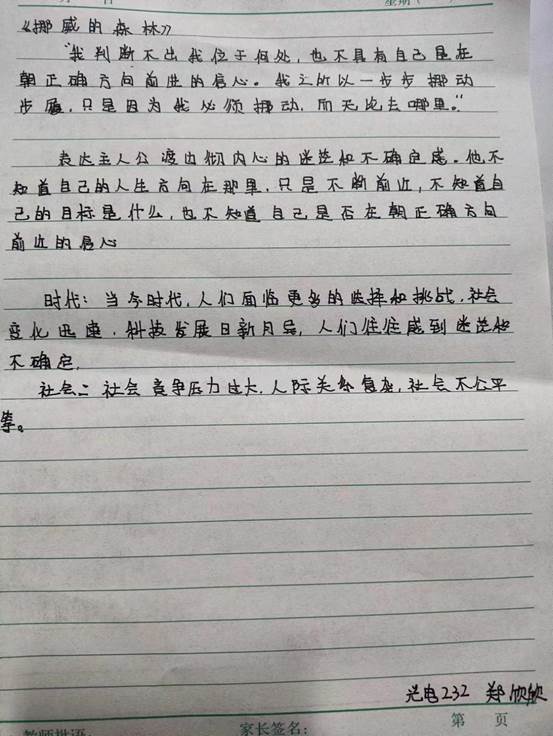 《挪威的森林》
"我判断不出我位于何处，也不具有自己是在
朝正确方向前进的信心。我之所以一步步挪动
步履，只是因为我必须挪动，而无论去哪里。"
表达主人公渡边彻内心的迷茫和不确定感。他不
知道自己的人生方向在那里，只是不断前近，不知道自
己的目标是什么，也不知道自己是否在朝正确方向
前近的信心
时代：当今时代，人们面临更多的选择和挑战，社会
变化迅速，科技发展日新月异，人们往往感到迷茫和
不确定，
社会：社会竞争压力过大，人际关系复杂，社会不公平
等。
光电232 郑欣欣
家长签名：
第 页